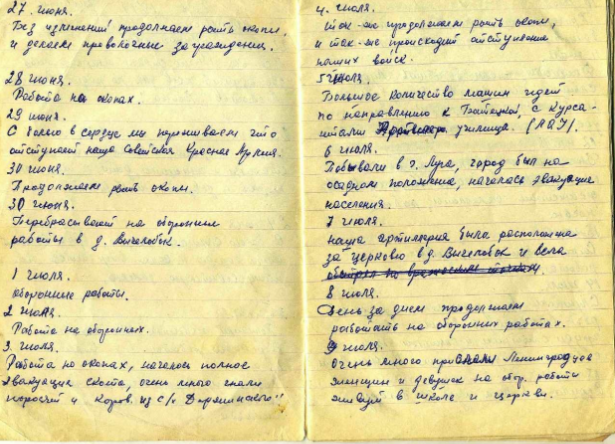 27 июня.
Без изменений продолжаем рыть окопы,
и делаем проволочные заграждения.
28 июня.
Работа на окопах.
29 июня.
С болью в сердце мы переживаем что
отступает наша Советская Красная Армия.
30 июня.
Продолжаем рыть окопы.
30 июня.
Перебрасывают на оборонные
работы в д. Вычелобок.
1 июля.
оборонные работы.
2 июля.
Работа на оборонных.
3 июля.
Работа на окопах, началось полное
эвакуация скота, очень много гнали
поросят и коров. из с/х Дзержинского"
4. июля.
так-же продолжаем рыть окопы,
и так-же происходит отступление
наших войск.
5 июля.
Большое количество машин идет
по направлению к Батецкой, с курса-
нтами училища. (АКУ).
6 июля.
Побывали в г. Луга, город был на
осадном положении, началась эвакуация
населения.
7 июля
наша артиллерия была расположена
за церковью в д. Вычелобок и вела
обстрел по вражеским
8 июля.
День за днем продолжаем
работать на оборонных работах.
9 июля.
очень много прислали Ленинградцев
женщин и девушек на обор. работы
живут в школе и церкви.